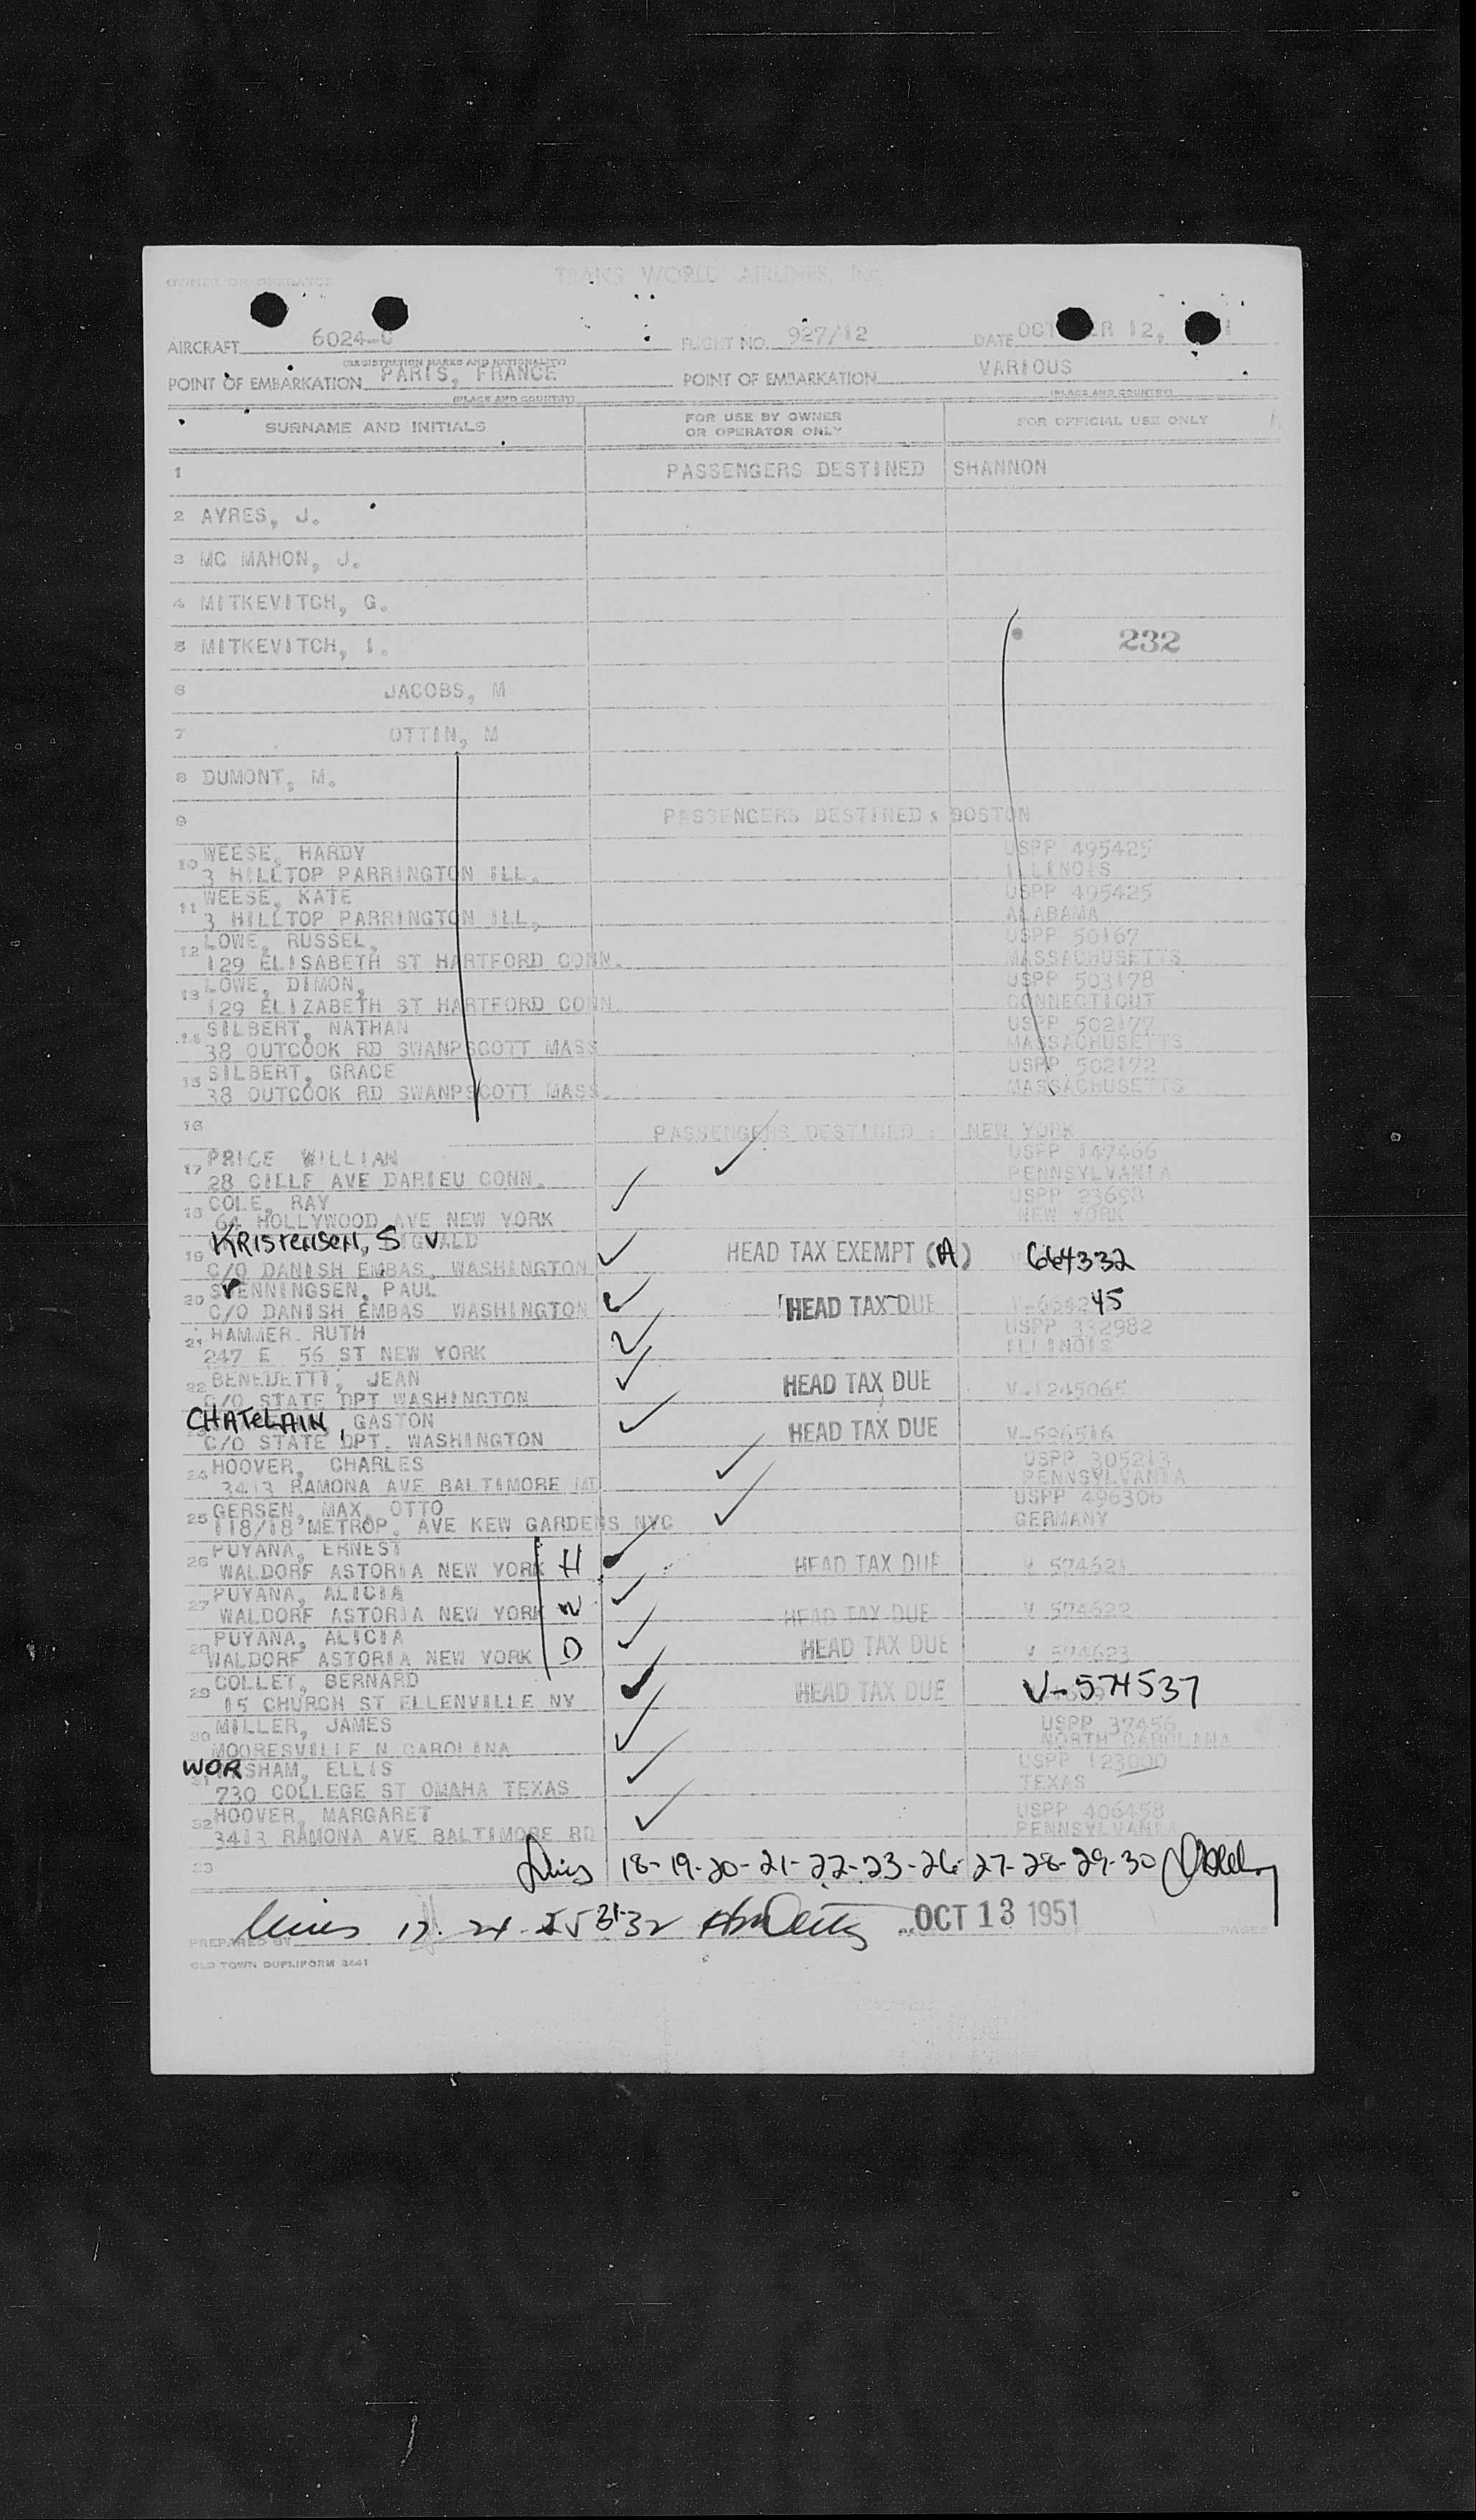 OWNER OR OPERATOR TRANS WORLD AIRLINES, INC.
AIRCRAFT 6024-C FLIGHT NO. 927/12 DATE OCT ER 12, 1
(REGISTRATION MARKS AND NATIONALITY)
POINT OF EMBARKATION PARIS, FRANCE POINT OF EMBARKATION VARIOUS
(PLACE AND COUNTRY) (PLACE AND COUNTRY)
SURNAME AND INITIALS FOR USE BY OWNER OR OPERATOR ONLY FOR OFFICIAL USE ONLY
1 PASSENGERS DESTINED SHANNON
2 AYRES, J.
3 MC MAHON, J.
4 MITKEVITCH, G.
5 MITKEVITCH, I. 232
6 JACOBS, M
7 OTTIN, M
8 DUMONT, M.
9 PASSENGERS DESTINED : BOSTON
10 WEESE, HARDY USPP 495425
3 HILLTOP PARRINGTON ILL. ILLINOIS
11 WEESE, KATE USPP 495425
3 HILLTOP PARRINGTON ILL, ALABAMA
12 LOWE, RUSSEL, USPP 50167
129 ELISABETH ST HARTFORD CONN. MASSACHUSETTS
13 LOWE, DIMON, USPP 503178
129 ELIZABETH ST HARTFORD CONN. CONNECTICUT
14 SILBERT, NATHAN USPP 502177
38 OUTCOOK RD SWANPSCOTT MASS MASSACHUSETTS
15 SILBERT, GRACE USPP 502172
38 OUTCOOK RD SWANPSCOTT MASS. MASSACHUSETTS
16 PASSENGERS DESTINED : NEW YORK
17 PRICE WILLIAN USPP 147466
28 CILLF AVE DARIEU CONN. PENNSYLVANIA
18 COLE, RAY USPP 23698
64 HOLLYWOOD AVE NEW YORK NEW YORK
19 KRISTENSEN, SIGVALD HEAD TAX EXEMPT (A) 664332
C/O DANISH EMBAS. WASHINGTON
20 SVENNINGSEN, PAUL HEAD TAX DUE V-664245
C/O DANISH EMBAS WASHINGTON
21 HAMMER, RUTH USPP 332982
247 E 56 ST NEW YORK ILLINOIS
22 BENEDETTI, JEAN HEAD TAX DUE V-1245065
C/O STATE DPT WASHINGTON
23 CHATELAIN, GASTON HEAD TAX DUE V-596516
C/O STATE DPT. WASHINGTON
24 HOOVER, CHARLES USPP 305213
3413 RAMONA AVE BALTIMORE MD PENNSYLVANIA
25 GERSEN, MAX, OTTO USPP 496306
118/18 METROP. AVE KEW GARDENS NYC GERMANY
26 PUYANA, ERNEST H HEAD TAX DUE V 574621
WALDORF ASTORIA NEW YORK
27 PUYANA, ALICIA W HEAD TAX DUE V 574622
WALDORF ASTORIA NEW YORK
28 PUYANA, ALICIA D HEAD TAX DUE V 574623
WALDORF ASTORIA NEW YORK
29 COLLET, BERNARD HEAD TAX DUE V-574537
15 CHURCH ST ELLENVILLE NY
30 MILLER, JAMES USPP 37456
MOORESVILLE N CAROLINA NORTH CAROLINA
31 WORSHAM, ELLIS USPP 123000
730 COLLEGE ST OMAHA TEXAS TEXAS
32 HOOVER, MARGARET USPP 406458
3413 RAMONA AVE BALTIMORE RD PENNSYLVANIA
33 18-19-20-21-22-23-26-27-28-29-30
17-24-25 31-32 OCT 13 1951
PREPARED BY OF PAGES
OLD TOWN DUPLIFORM 3441